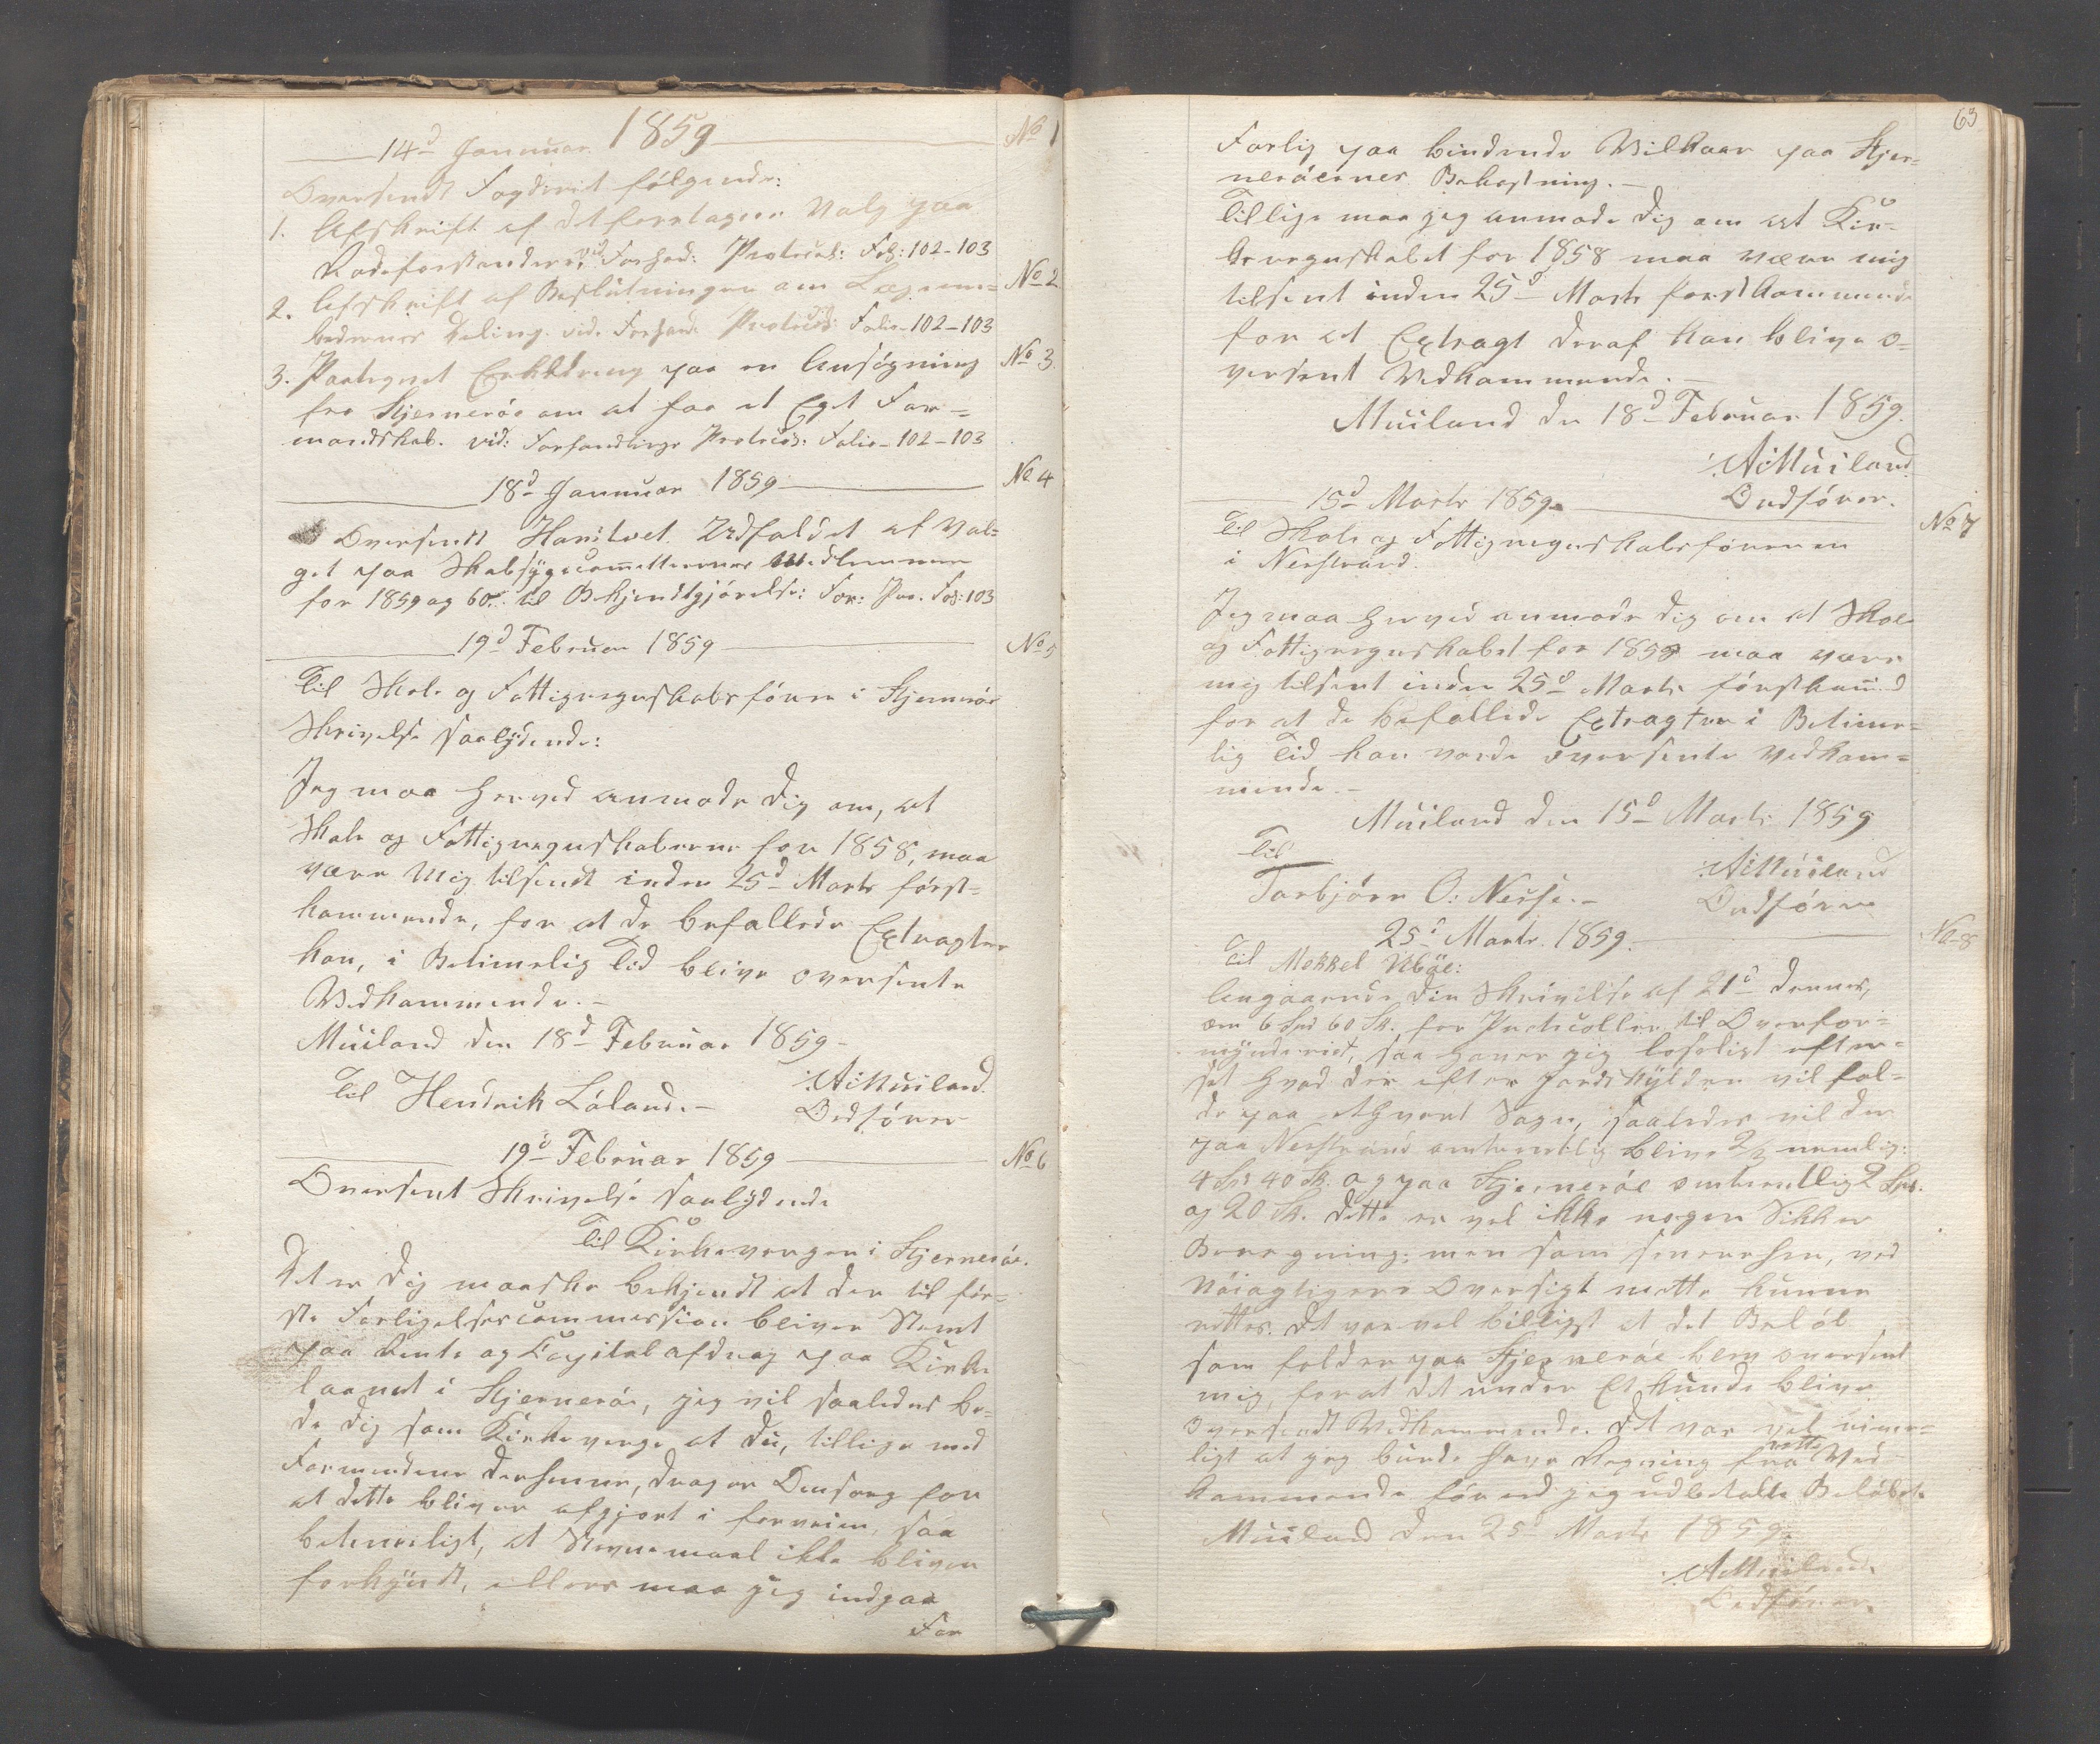 1859
14d Januar
No 1
Oversendt Fogderiet følgende:
1. Afskrift af det foretagen Valg paa
Rodeforstandere, vid Forhand: Protocol: Fol: 102-103
2. Afskrift af Beslutningen om Lægeom=
No 2
bedernes Deling. vid. Forhand: Protocol: Folio-102-103
3. Paategnet Erklæring paa en Ansøgning
No 3
fra Hjernerøe om at faa et Eget For=
mandskab. vid: Forhandlings Protocol: Folio-102-103
18d Januar 1859
No 4
Oversendt Udfaldet af Val=
get paa Medlemmer
for 1859 og 60. til Bekjendtgjørelse: For: Pro. Fol: 103
19d Februar 1859
No 5
Til Skole og Fattigregnskabsfører i Hjernerøe
Skrivelse saalydende:
Jeg maa herved anmode Dig om, at
Skole og Fattigregnskaberne for 1858, maa
være Mig tilsendt inden 25d Marts først=
kommende, for at de befallede Extragter
kan, i Betimelig Tid blive oversente
Vedkommende.-
Muiland den 18d Februar 1859-
Til Hendrik Løland.-
A: Muiland.
Ordfører
19d Februar 1859
No 6
Oversent Skrivelse saalydende
Til Kirkevergen i Hjernerøe.
Det er Dig maaske bekjendt at der til før=
ste Forligelsescommission bliver Stemt
paa Rente og Capital afdrag paa Kirke
laanet i Hjernerøe, jeg vil saaledes be=
de Dig som Kirkeverge at du, tillige med
Formendene dersemme, drager Omsorg for
at dette bliver afgjort i forveien, saa
betimeligt, at Stevnemaal ikke bliver
forkyndt, ellers maa jeg indgaa
For
63
Forlig paa bindende Vilkaar paa Hjer=
nerøernes Bekostning.-
Tillige maa jeg anmode Dig om at Kir=
keregnskabet for 1858 maa være mig
tilsent inden 25d Marts førstkommende
for at Extragt deraf kan blive o=
versent Vedkommende.-
Muiland den 18d Februar 1859.
A: Muiland
Ordfører.
15d Marts 1859.
No 7
Til Skole og Fattigregnskabsføreren
i Nerstrand.
Jeg maa herved anmode Dig om at Skole
og Fattigregnskabet for 1858 maa være
mig tilsent inden 25d Marts førstkommd
for at de befallede Extragter i Betime=
lig Tid kan vorde oversente Vedkom=
mende.-
Muiland den 15d Marts 1859
Til
Torbjørn O: Nesse.-
A: Muiland
Ordfører
25d Marts 1859.
No 8
Til Mekkel Vbøe:
Angaaende din Skrivelse af 21d dennes,
om 6 Spd 60 Sk. for Protcoller til Overfor=
mynderiet, saa haver jeg loseligt efter=
set hvad der efter Jordskylden vil fal=
de paa ethvert Sogn, saaledes vil der
paa Nerstrand omtrentlig blive 2/3 nemlig:
4 Spd 40 Sk. og paa Hjernerøe omtrentlig 2 Spd.
og 20 Sk. dette er vel ikke nogen Sikker
Beregning; men som senerehen, ved
Nøiagtigere Oversigt matte kunne
rettes. det var vel billigst at det Beløb
som falder paa Hjernerøe blev oversent
mig, for at det under Et kunde blive
oversendt Vedkommende. Det var vel rime=
ligt at jeg burde have Regning fra rette Ved
kommende førend jeg udbetalte Beløbet.
Muiland den 25d Marts 1859.
A: Muiland.
Ordfører.